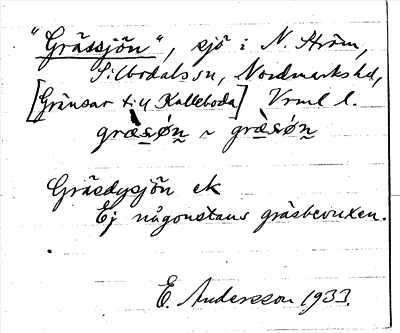 "Grässjön", sjö i N. Ström,
Silbodals sn, Nordmarks hd,
[Gränsar till Kalleboda] Vrml l.
græ̀sø̀n ~ græ̀sø̀n
Gräsdysjön ek
Ej någonstans gräsbevuxen.
E. Andersson 1933.